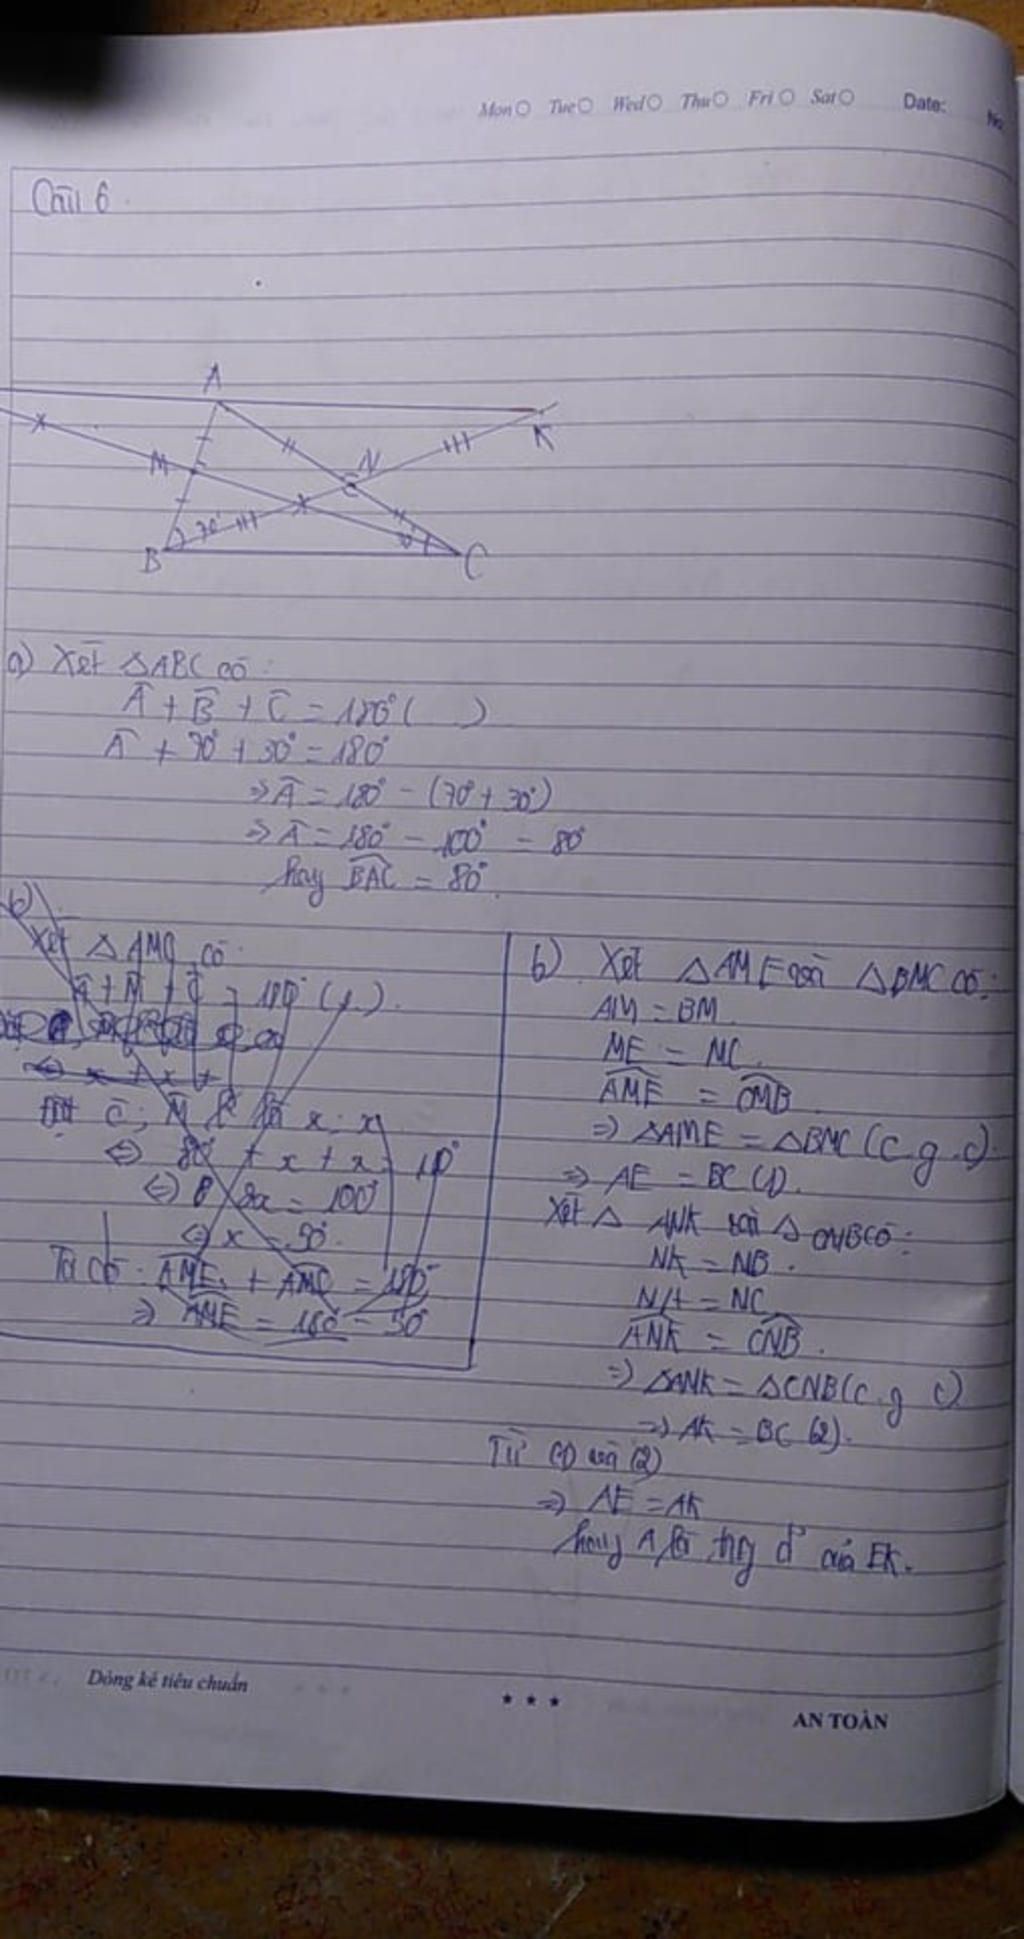 Mon Tue Wed Thu Fri Sat Date: No
Câu 6
A
K
M
N
70°
B
C
a) Xét △ABC có:
Â + B̂ + Ĉ = 180° ( )
Â + 70° + 30° = 180°
⇒ Â = 180° - (70° + 30°)
⇒ Â = 180° - 100° = 80°
hay BAC = 80°
b)
Xét △ AMC có
Â + M̂ + Ĉ = 180°
⇔ x + x +
Ĉ; M̂ là x; x
⇔ 80 + x + x = 180°
⇔ 2x = 100°
⇔ x = 50°
Ta có: AME + AMC = 180°
⇒ AME = 180° - 50°
b) Xét △AME và △BMC có:
AM = BM
ME = MC
AME = CMB
⇒ △AME = △BMC (c.g.c)
⇒ AE = BC (1).
Xét △ ANK và △ CNB có:
NK = NB.
NA = NC
ANK = CNB.
⇒ △ANK = △CNB (c.g c)
⇒ AK = BC (2).
Từ (1) và (2)
⇒ AE = AK
hay A là trg đ' của EK.
Dòng kẻ tiêu chuẩn
★ ★ ★
AN TOÀN